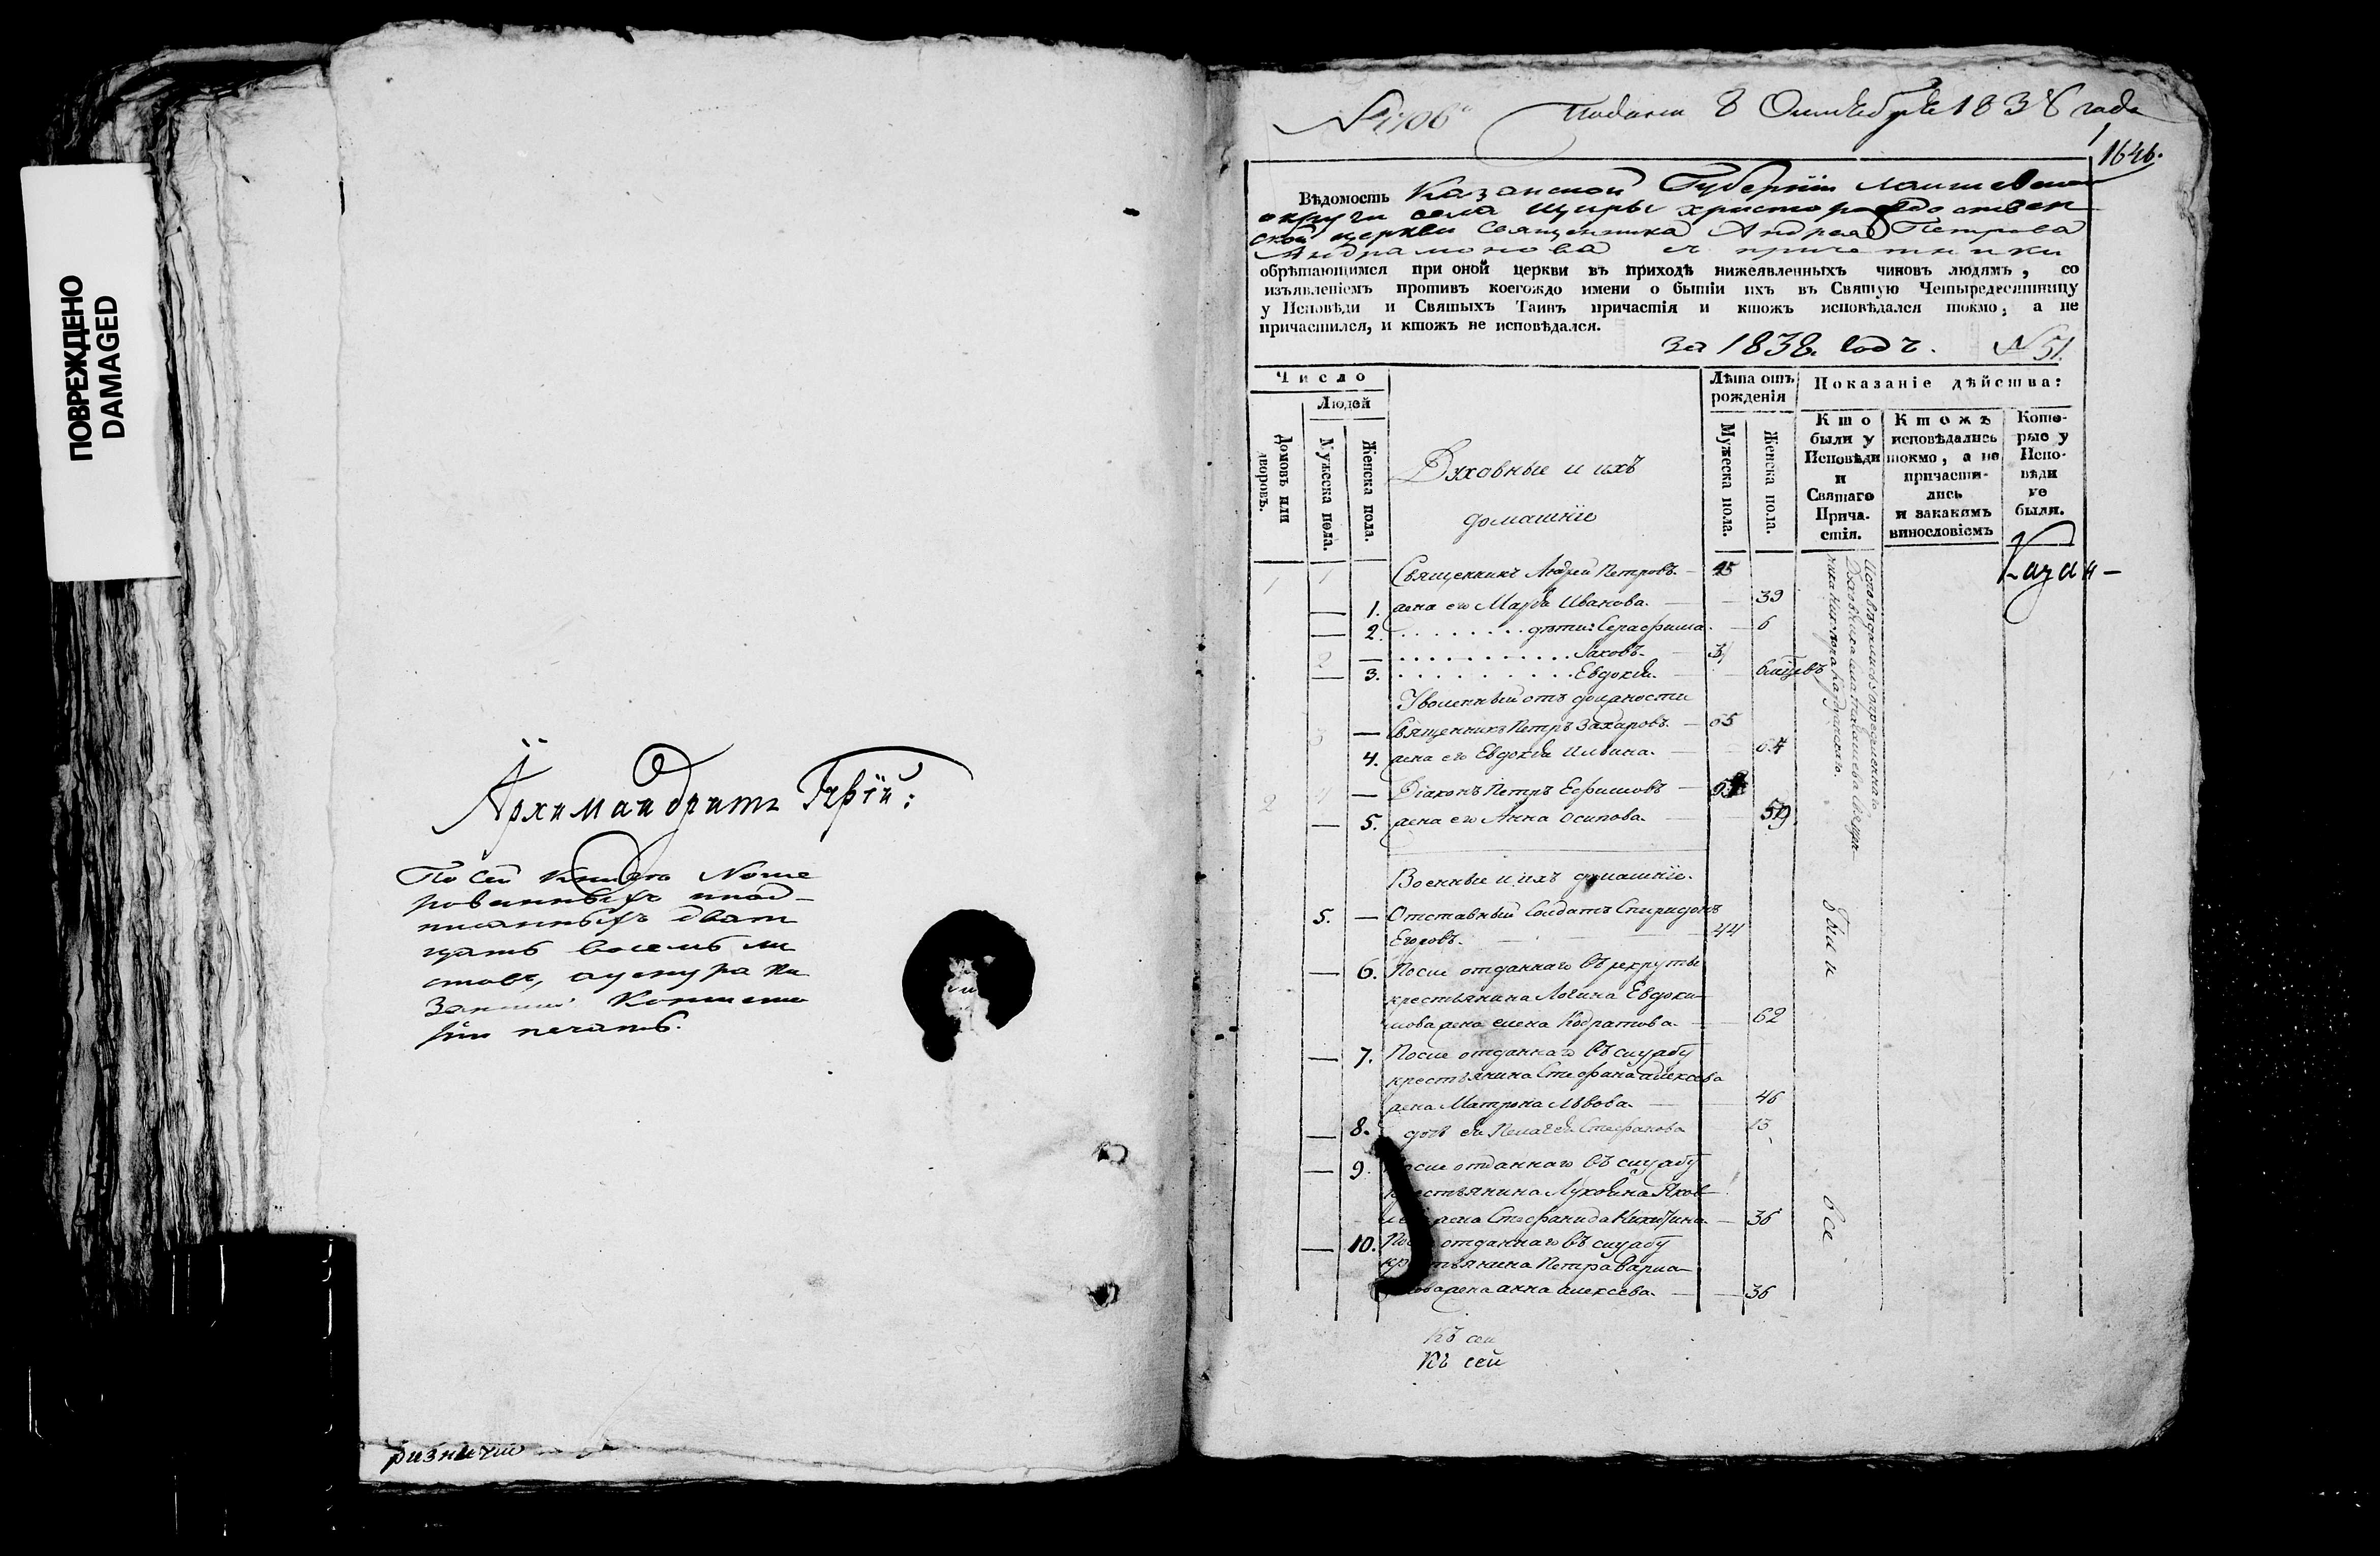 ПОВРЕЖДЕНО
DAMAGED
Архимандритъ Гурій:
По сей книге Номе
рованныхъ и под-
писанныхъ дват
цать восемь ли
стовъ, а у снура ка
Консисто
ріи печать.
ризничіи
Подана 8 Октября 1838 года
1646.
Вѣдомость Казанской Губерніи Лаишевской
округи села Щиры христорождествен
ской церкви Священника Андрея Петрова
Андрамонова съ причетники
обрѣтающимся при оной церкви въ приходѣ нижеявленныхъ чиновъ людямъ, со
изъявленіемъ противъ коегождо имени о бытіи ихъ въ Святую Четыредесятницу
у Исповѣди и Святыхъ Таинъ причастія и ктожъ исповѣдался токмо, а не
причастился, и ктожъ не исповѣдался.
за 1838. годъ. № 51.
Число
Людей
Домовъ или дворовъ.
Мужеска пола.
Женска пола.
Духовные и ихъ
домашніе
Лѣта отъ рожденія
Мужеска пола.
Женска пола.
Показаніе дѣйства:
Кто были у Исповѣди и Святаго Причастія.
Ктожъ исповѣдались токмо, а не причастились и закакимъ винословіемъ
Которые у Исповѣди не были.
Казан-
1 1 Священникъ Андрей Петровъ. 45
— 1. жена его Марѳа Иванова. 39
— 2. дѣти: Серафима. 6
2 — Іаковъ. 3
— 3. Евдокія.
Уволенный отъ должности
3 — Священникъ Петръ Захаровъ. 65
4. жена его Евдокія Ильина. 64
2 4 — Діаконъ Петръ Ефимовъ
— 5. жена его Анна Осипова. 59
Военные и ихъ домашніе.
5. — Отставный Солдатъ Спиридонъ
Егоровъ. 44
— 6. После отданнаго въ рекруты
крестьянина Логина Евдоки-
мова жена елена Кодратова. 62
— 7. После отданнаго въ службу
крестьянина Стефана алексева
жена Матрона Львова. 46
— 8. дочь ея Пелагея Стефанова 13
— 9. После отданнаго въ службу
крестьянина Яков-
лева жена Стефанида Никитина. 36
— 10. После отданнаго въ службу
крестьянина Петра Варла-
мова жена анна алексева. 36
были
все
Къ сей
Къ сей